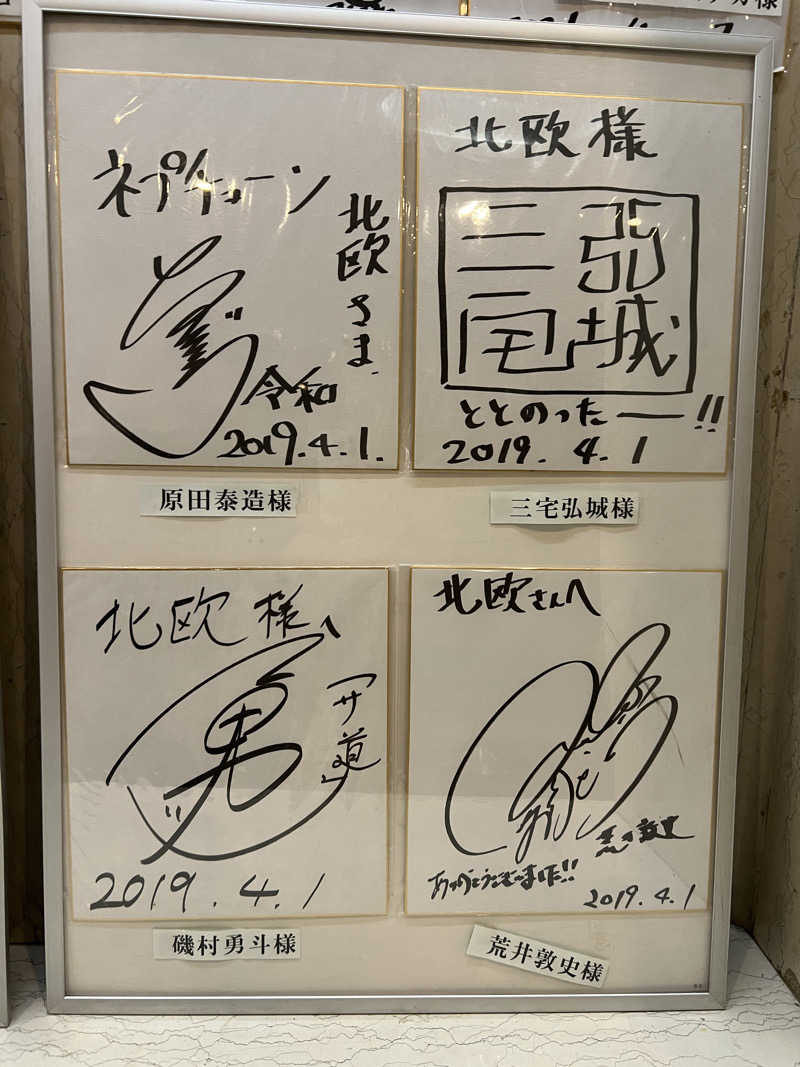 様
ネプチューン
北欧さま
令和
2019.4.1.
原田泰造様
北欧様
三宅弘城
ととのったー!!
2019.4.1
三宅弘城様
北欧様へ
「サ道」
2019.4.1
磯村勇斗様
北欧さんへ
荒井敦史
ありがとうございました!!
2019.4.1
荒井敦史様